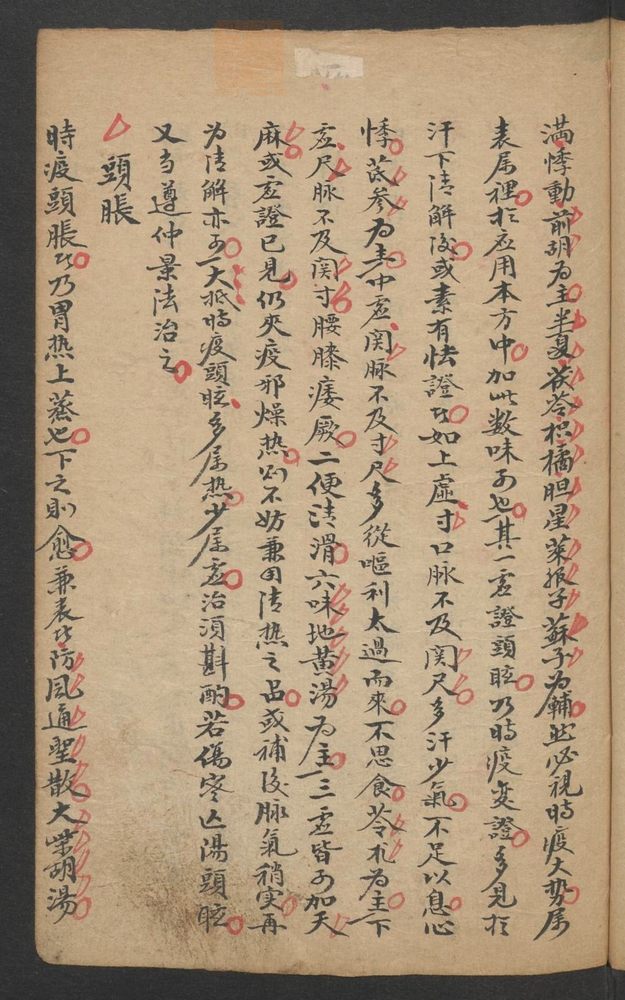 满悸動前胡为主半夏茯苓枳橘胆星萊菔子蘇子为輔然必視時疫大势属
表属裡於应用本方中加此数味可也其一虚證頭眩乃時疫变證多見於
汗下清解後或素有怯證者如上虛寸口脉不及関尺多汗少氣不足以息心
悸茋参为主中虚関脉不及寸尺多從嘔利太過而來不思食苓朮为主下
虚尺脉不及関寸腰膝痿厥二便清滑六味地黄湯为主三虚皆可加天
麻或虚證已見仍夾疫邪燥热則不妨兼用清热之品或補後脉氣稍实再
为清解亦可大抵時疫頭眩多属热少属虚治須斟酌若傷寒亡陽頭眩
又当遵仲景法治之
頭脹
時疫頭脹者乃胃热上蒸也下之則愈兼表者防风通聖散大柴胡湯